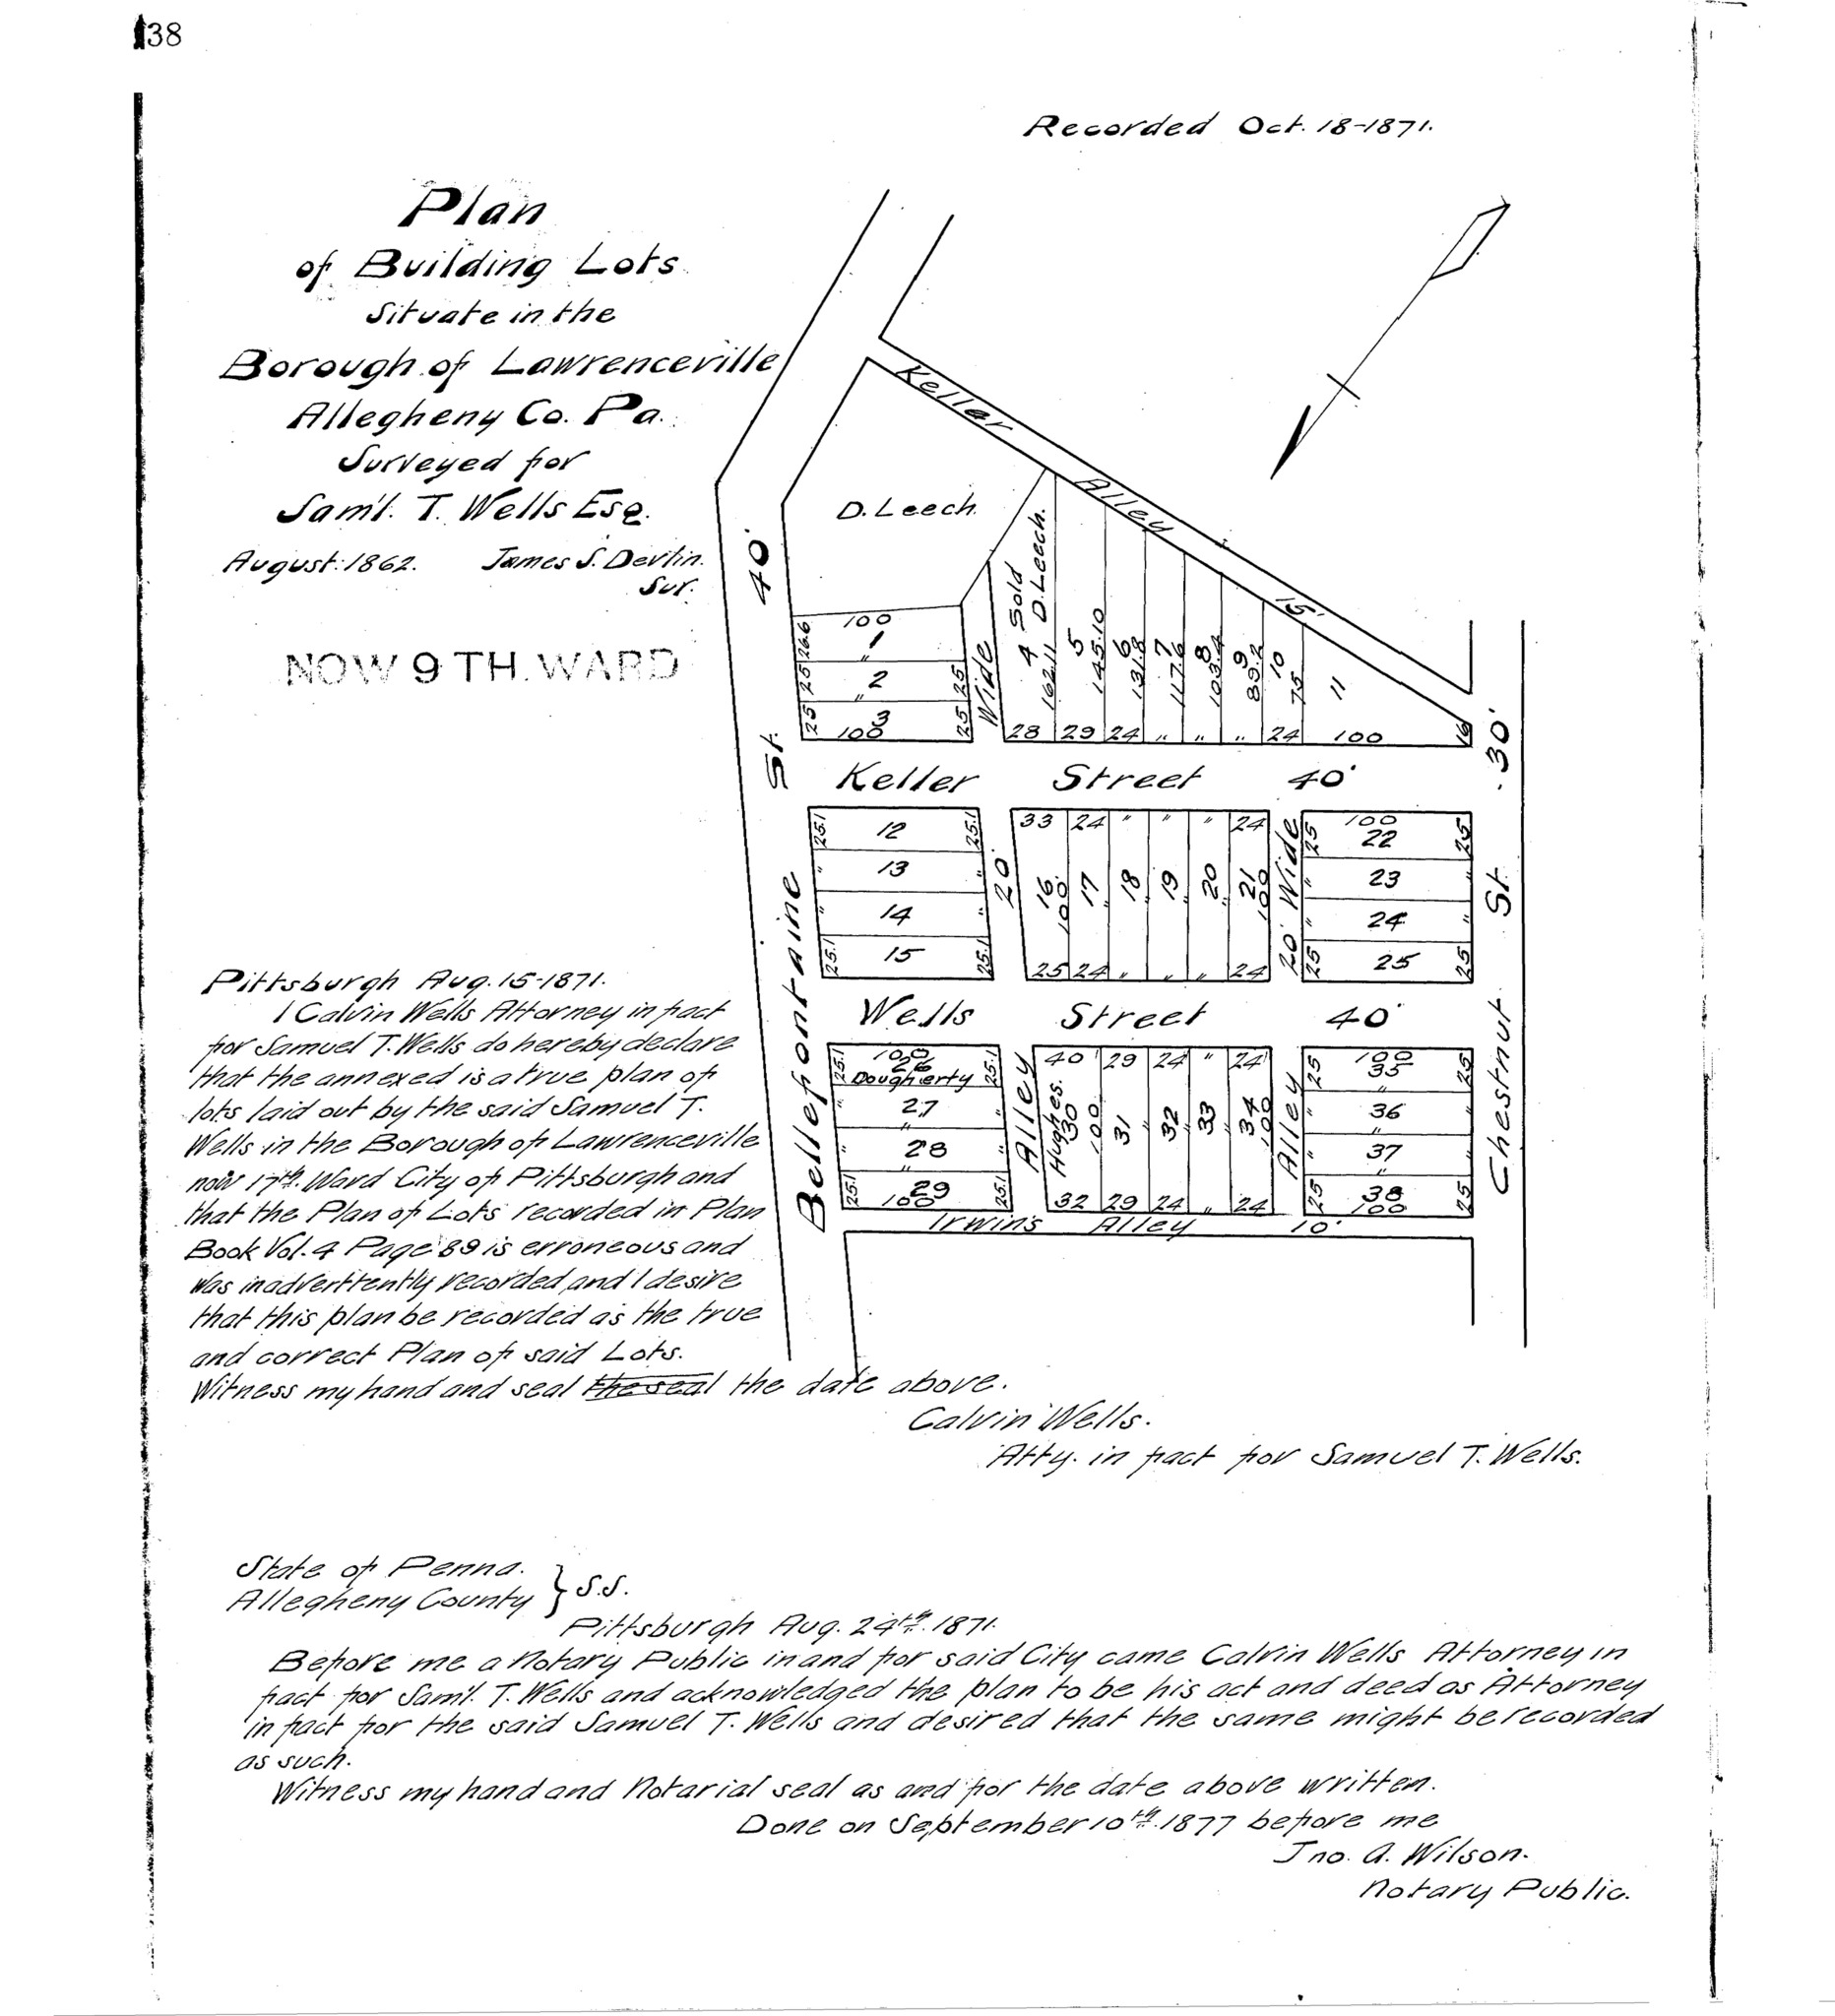 138
Recorded Oct. 18-1871.
Plan
of Building Lots
Situate in the
Borough of Lawrenceville
Allegheny Co. Pa.
Surveyed for
Sam'l. T. Wells Esq.
August: 1862. James S. Devlin.
Sur.
NOW 9 TH. WARD
Keller Alley 15'
D. Leech.
40'
100
26.6
1
"
25 2 25
"
25 3 25
100
Wide
4 Sold D. Leech.
162.11
5
145.10
6
131.8
7
117.6
8
103.4
9
89.2
10
75
11
28 29 24 " " " 24 100 16
30'
St.
Keller Street 40'
25.1 12 25.1
" 13 "
" 14 "
25.1 15 25.1
20'
33 24 " " " 24
16
100
17
"
18
"
19
"
20
"
21
100
25 24 " " " 24
20' Wide
100
25 22 25
" 23 "
" 24 "
25 25 25
St.
Wells Street 40'
Bellefontaine
100
25.1 26 25.1
Dougherty
" 27 "
"
" 28 "
"
25.1 29 25.1
100
Alley
40 29 24 " 24
Hughes.
30
100
31
32
"
33
"
34
100
32 29 24 " 24
Alley
100
25 35 25
"
" 36 "
"
" 37 "
"
25 38 25
100
Chestnut
Irwin's Alley 10'
Pittsburgh Aug. 15-1871.
I Calvin Wells Attorney in fact
for Samuel T. Wells do hereby declare
that the annexed is a true plan of
lots laid out by the said Samuel T.
Wells in the Borough of Lawrenceville
now 17th. Ward City of Pittsburgh and
that the Plan of Lots recorded in Plan
Book Vol. 4 Page 89 is erroneous and
was inadverttently recorded, and I desire
that this plan be recorded as the true
and correct Plan of said Lots.
Witness my hand and seal the seal the date above.
Calvin Wells.
Atty. in fact for Samuel T. Wells.
State of Penna. } S.S.
Allegheny County
Pittsburgh Aug. 24th. 1871.
Before me a Notary Public in and for said City came Calvin Wells Attorney in
fact for Sam'l. T. Wells and acknowledged the plan to be his act and deed as Attorney
in fact for the said Samuel T. Wells and desired that the same might be recorded
as such.
Witness my hand and Notarial seal as and for the date above written.
Done on September 10th. 1877 before me
Jno. A. Wilson.
Notary Public.